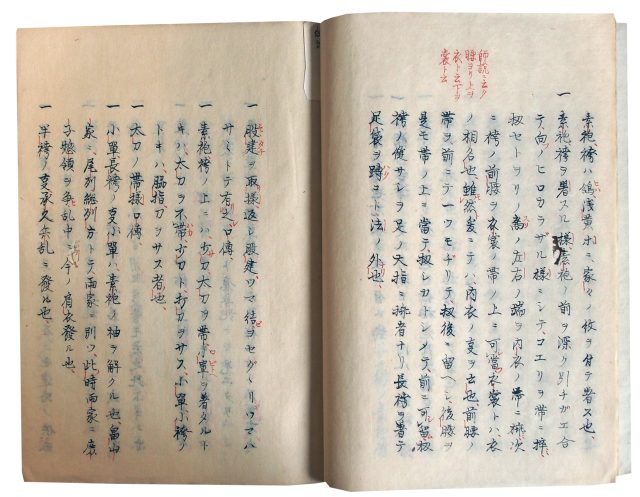 師説ニ云ク
腰ヨリ上ヲ
衣ト云下ヲ
裳ト云
素袍袴ハ鴇浅黄ホニ家々ノ仗ヲ付テ署ス也
一 素袍袴ヲ署スル様素袍ノ前ヲ深ク引チガエ合
テ向ノヒロカラザル様ミシテコエリヲ帯ミ挿
扨セトヲリノ左右ノ端ヲ内衣ノ帯ニ挿次
ニ袴ノ前腰ヲ衣裳ノ帯ノ上ニ可當衣裳トハ衣
ノ相名也雖然爰ニテハ内衣ノ夏ヲ云也前腰ノ
帯ヲ前ニテ一ツモヂリテ扨後ニ留ヘシ後腰ヲ
是モ帯ノ上ニ當テ扨レカトシメテ前ニ可留扨
袴ノ僅サレヲ足ノ大指ニ掛者ナリ長袴ヲ署テ
足裳ヲ蹲コト法ノ外也
一 股建ヲ取様返シ股建ワマ結ヲセグヽリワマハ
サミトテ有之口傳
一 素袍袴ノ上ニハ少刀太刀ヲ帯小單ヲ着タルト
キハ太刀ヲ不帯少刀ト打刀ヲサス小單小袴ノ
トキハ脇指刀ヲサス者也
一 太刀ノ帯様口傳
一 小單長袴ノ夏小單ハ素袍ノ袖ヲ解クル也畠山
家ニ尾列総列方トテ兩家ニ別ツ此時兩家ニ庶
子惣領ヲ争乱中ニ今ノ肩衣發ル也
一 半袴ノ夏承久乱ニ發ル也